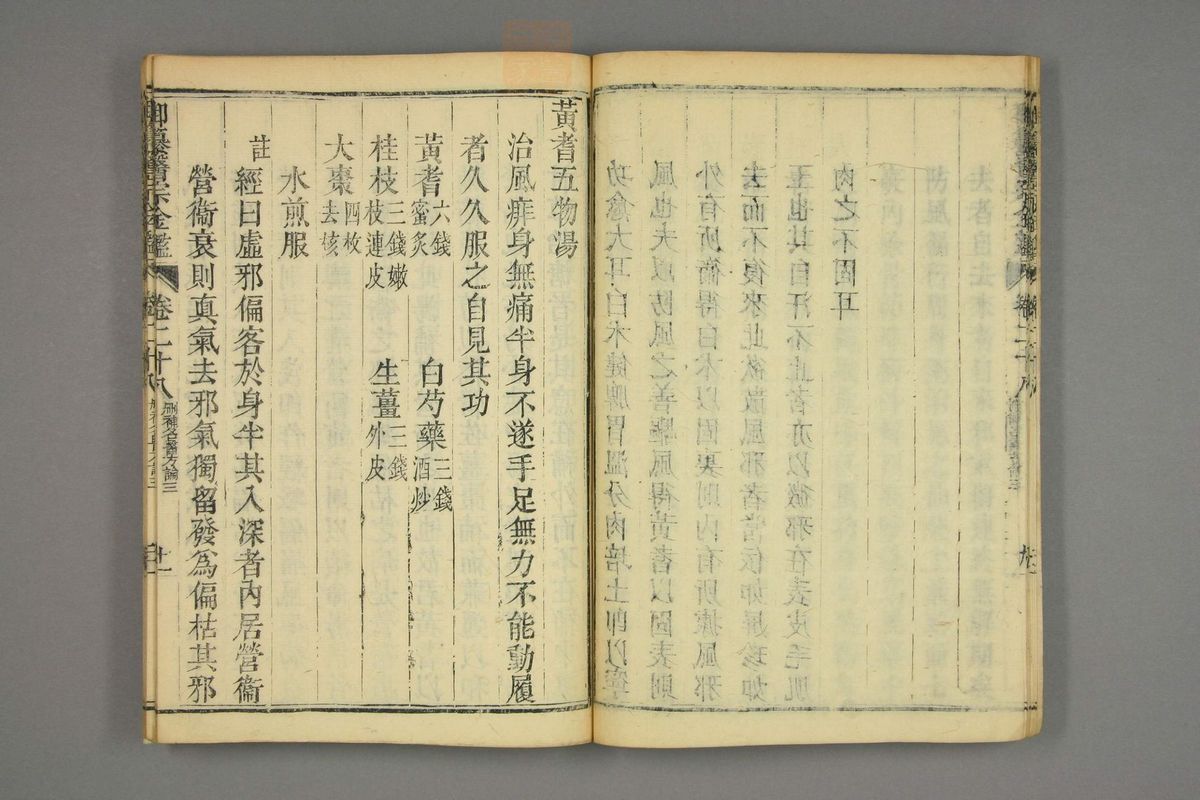 功愈大耳白朮健脾胃溫分肉培土即以寧
風也夫以防風之善驅風得黃耆以固表則
外有所衛得白朮以固裏則內有所據風邪
去而不復來此欲散風邪者當依如屏珍如
玉也其自汗不止者亦以微邪在表皮毛肌
肉之不固耳
黃耆五物湯
治風痱身無痛半身不遂手足無力不能動履
者久久服之自見其功
黃耆六錢蜜炙 白芍藥三錢酒炒
桂枝三錢嫩枝連皮 生薑三錢外皮
大棗四枚去核
水煎服
註 經曰虛邪偏客於身半其入深者內居營衞
營衞衰則真氣去邪氣獨留發爲偏枯其邪
御纂醫宗金鑑 卷二十八 刪補名醫方論三